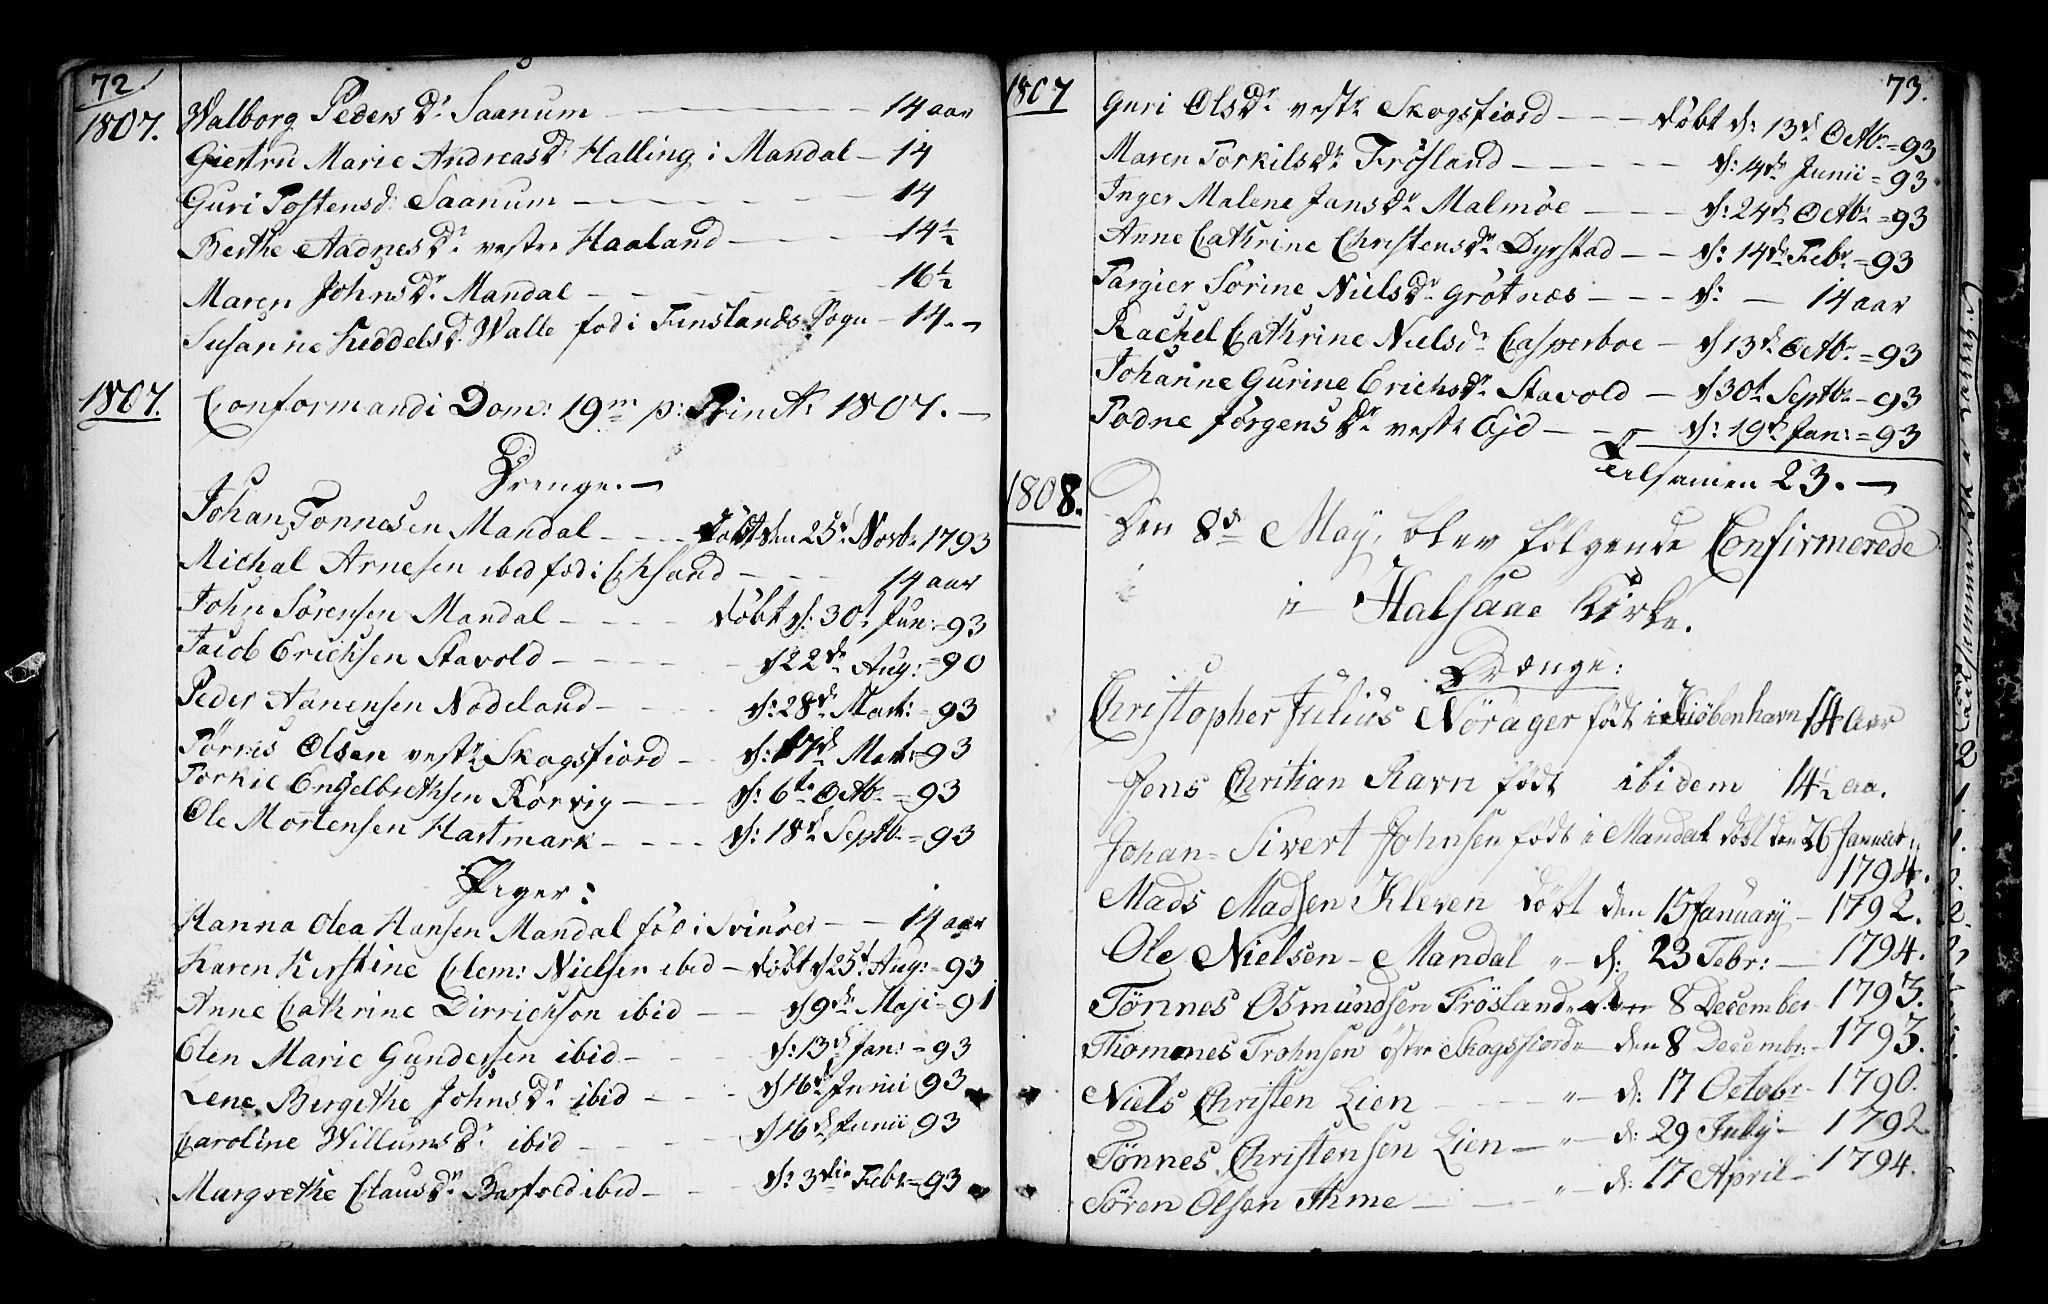 72
1807. Walborg Peders Dr Saanum — 14 aar
Giertru Marie Andreas Dr Halling i Mandal — 14
Guri Tostensd: Saanum — 14
Berthe Aadnes Dr vestre Haaland — 14½
Maren Johns Dr Mandal — 16½
Susanne Keddels Dr Walle fød i Finslands Sogn — 14. —
1807. Conformandi Dom: 19m p: Trinit: 1807. —
Drenge. —
Johan Tønnesen Mandal — døbt den 25d Novbr 1793
Michal Arnesen ibid fød i Chsand — 14 aar
John Sörensen Mandal — döbt d: 30t Jun: = 93
Jacob Erichsen Stavold — d 22de Aug: = 90
Peder Aanensen Nödeland — d: 28de Mart: = 93
Törris Olsen vestr Skogsfiord — d: 17de Mart: = 93
Torkil Engelbrethsen Rörvig — d: 6te Octbr = 93
Ole Mortensen Hartmark — d: 18de Septbr = 93
Piger:
Hanna Olea Hansen Mandal föd i Svinöer — 14 aar
Karen Kirstine Clem: Nielsen ibid — döbt d 25t Aug: = 93
Anne Cathrine Dirrichson ibid — d 9de Maji = 91
Elen Marie Gundersen ibid — d: 13d Jan: = 93
Lene Bergithe Johns Dr ibid — d 16de Junii 93
Caroline Willums Dr ibid — d 16d Junii 93
Margrethe Claus Dr Barfoed ibid — d: 3die Febr = 93
73.
1807 Guri Ols Dr vestr Skogsfiord — döbt d: 13d Octbr = 93
Maren Torkils Dr Frösland — d: 14de Junii = 93
Inger Malene Jans Dr Malmöe — d: 24de Octbr = 93
Anne Cathrine Christens Dr Dyrstad — d: 14de Febr = 93
Targier Sörine Niels Dr Grötnæs — d: — 14 aar
Rachel Cathrine Nielsdr Casperboe — d 13de Octbr = 93
Johanne Gurine Erichs Dr Stavold — d 30t Septbr = 93
Todne Jörgens Dr vestr Ejd — d: 19de Jan: = 93
Tilsamen 23. —
1808. Den 8de May, blev fölgende Confirmerede
i Halsaae Kirke.
Drænge:
Christopher Julius Nörager födt i Kiöbenhavn 14 aar
Jens Chritian Ravn födt ibidem 14½ aa.
Johan Sivert Johnsen födt i Mandal döbt den 26 Januar
1794.
Mads Madsen Kleven döbt den 15 January — 1792.
Ole Nielsen — Mandal " — d: 23 Febr: — 1794.
Tönnes Osmundsen Frösland " den 8 December 1793.
Thommes Trohnsen östre Skogsfiord " — den 8 Decembr: — 1793.
Niels Christen Lien — " — d: 17 Octobr — 1790.
Tönnes Christensen Lien — " — d: 29 July — 1792
Sören Olsen Ihme — " — d: 17 April — 1794.